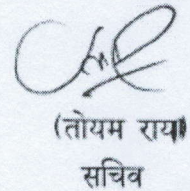 (तोयम राया)
सचिव